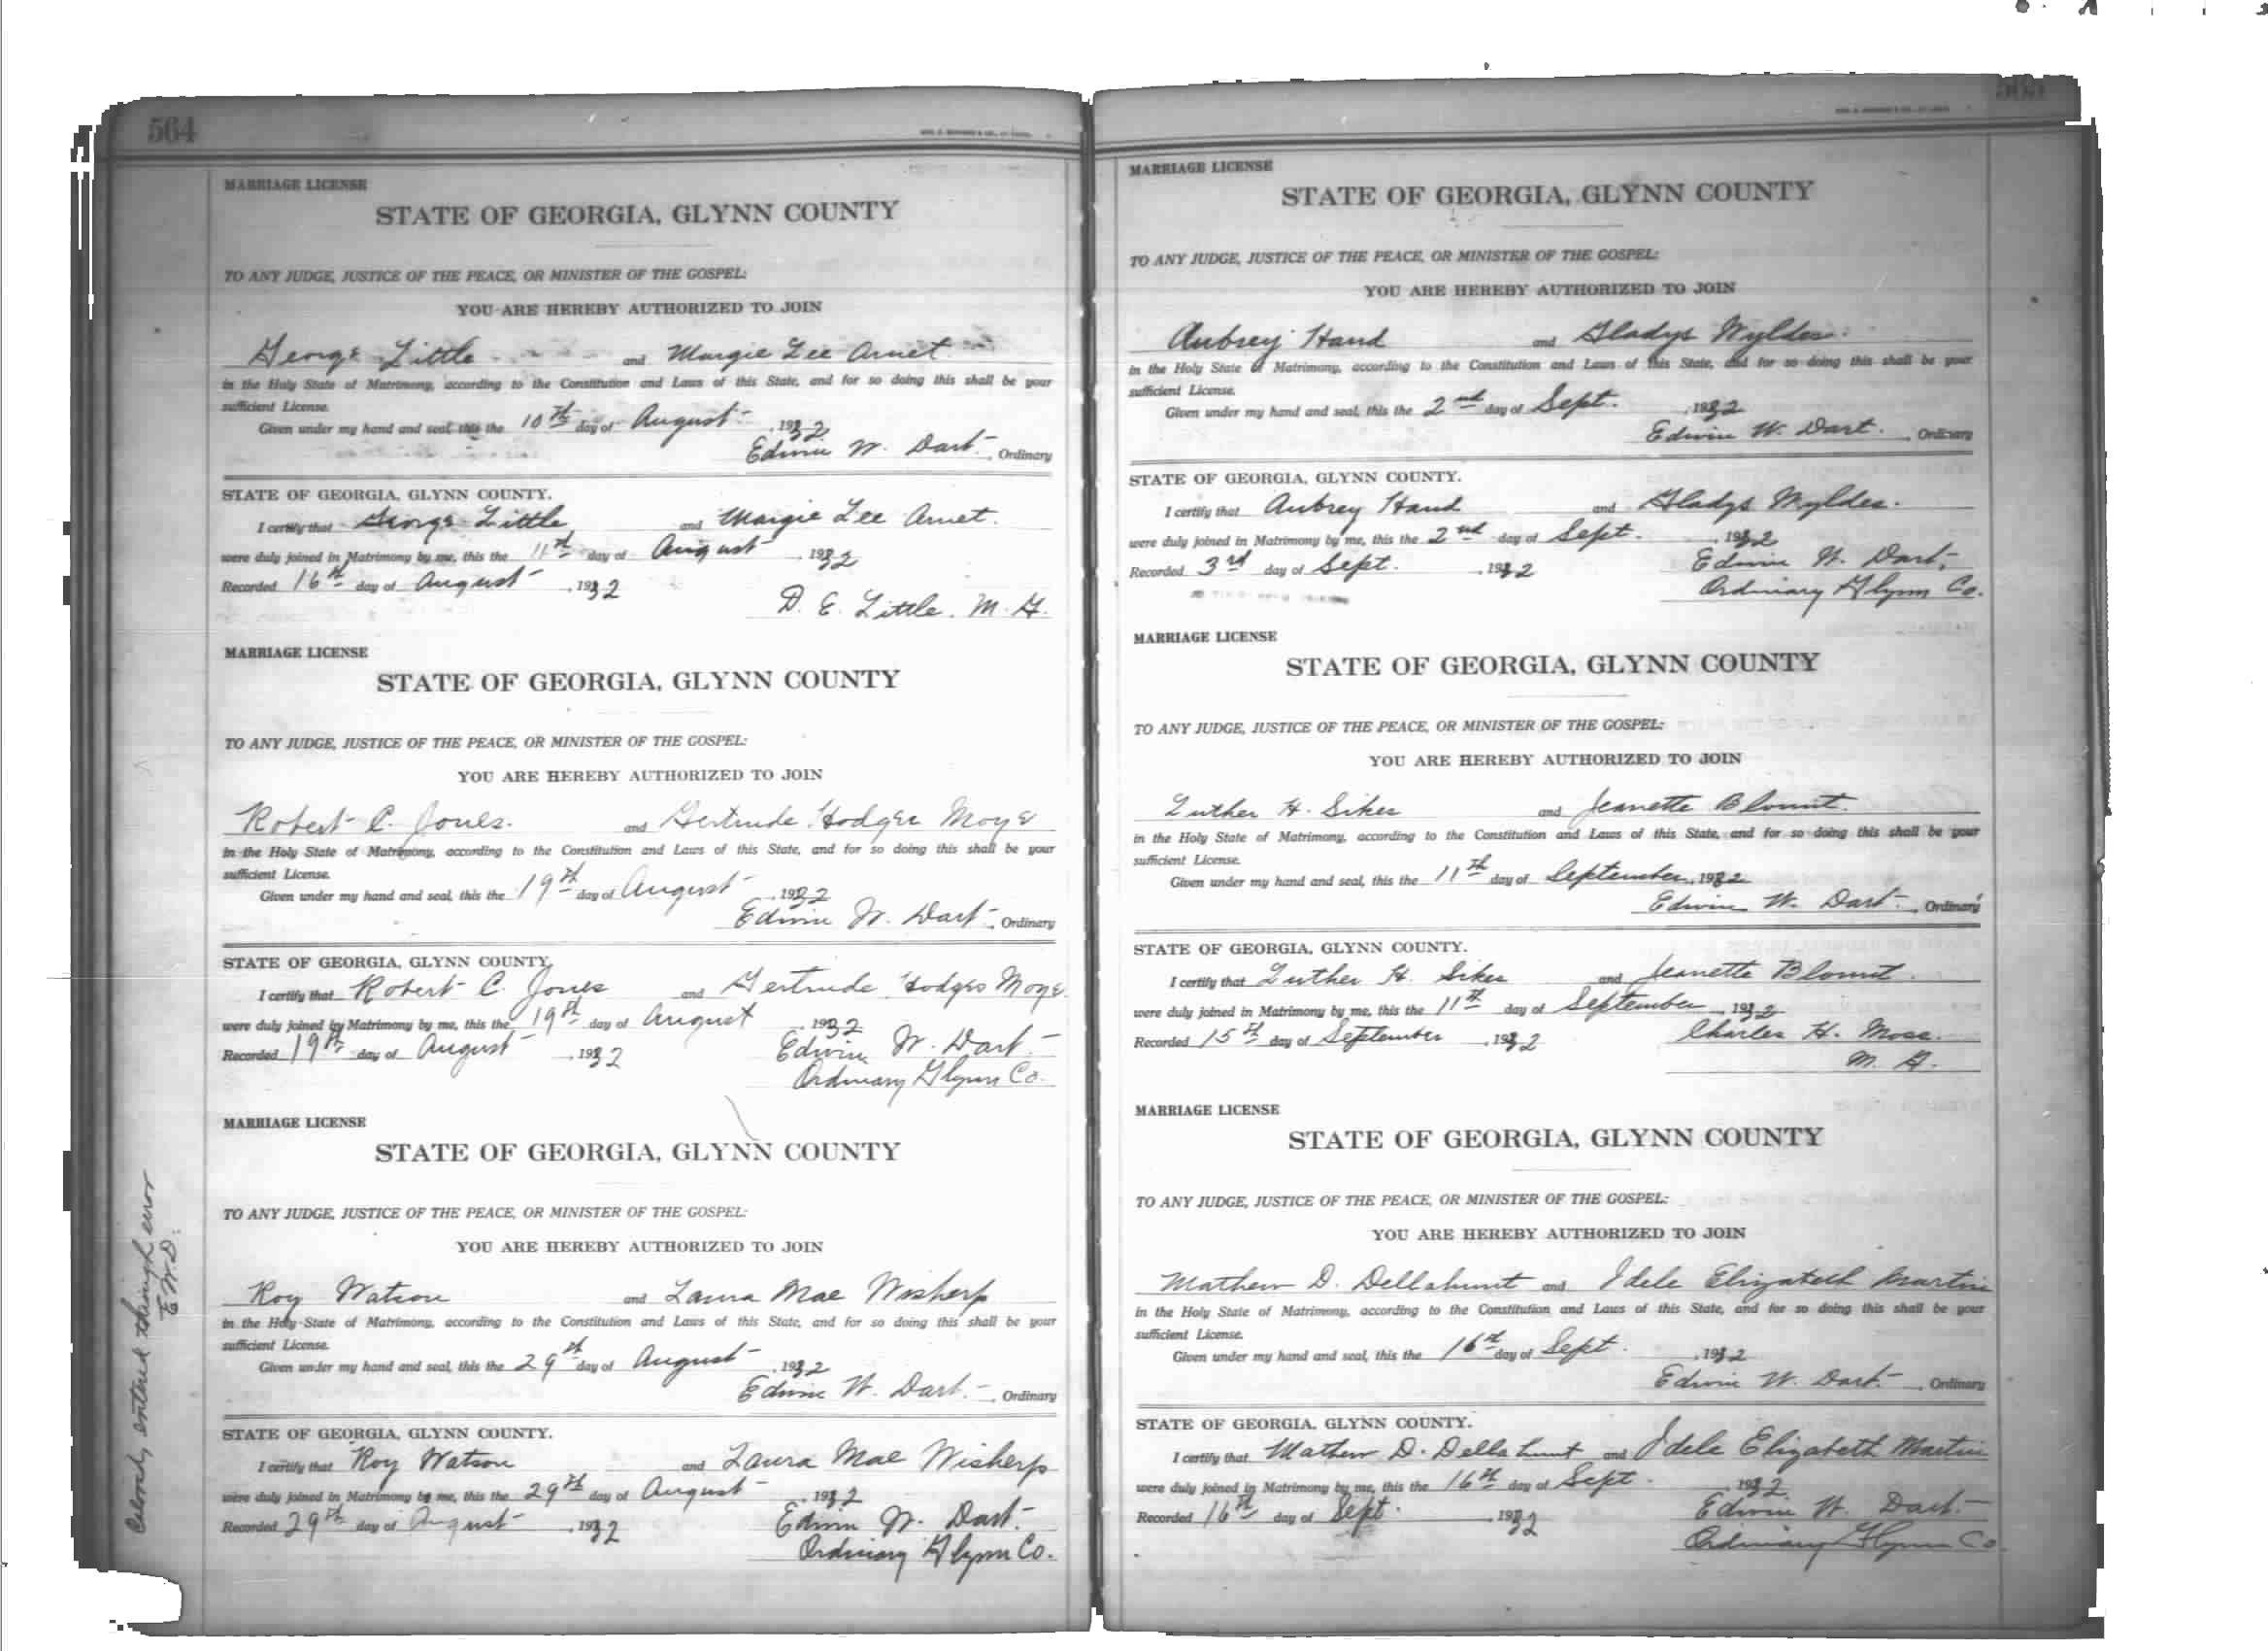 564
MARRIAGE LICENSE
STATE OF GEORGIA, GLYNN COUNTY
TO ANY JUDGE, JUSTICE OF THE PEACE, OR MINISTER OF THE GOSPEL:
YOU ARE HEREBY AUTHORIZED TO JOIN
George Little and Margie Lee Arnet
in the Holy State of Matrimony, according to the Constitution and Laws of this State, and for so doing this shall be your
sufficient License.
Given under my hand and seal, this the 10th day of August, 1932
Edwin W. Dart, Ordinary
STATE OF GEORGIA, GLYNN COUNTY.
I certify that George Little and Margie Lee Arnet.
were duly joined in Matrimony by me, this the 11th day of August, 1932
Recorded 16th day of August, 1932
D. E. Little. M. G.
MARRIAGE LICENSE
STATE OF GEORGIA, GLYNN COUNTY
TO ANY JUDGE, JUSTICE OF THE PEACE, OR MINISTER OF THE GOSPEL:
YOU ARE HEREBY AUTHORIZED TO JOIN
Robert C. Jones. and Gertrude Hodges Moye
in the Holy State of Matrimony, according to the Constitution and Laws of this State, and for so doing this shall be your
sufficient License.
Given under my hand and seal, this the 19th day of August, 1932
Edwin W. Dart, Ordinary
STATE OF GEORGIA, GLYNN COUNTY.
I certify that Robert C. Jones and Gertrude Hodges Moye
were duly joined in Matrimony by me, this the 19th day of August, 1932
Recorded 19th day of August, 1932
Edwin W. Dart
Ordinary Glynn Co.
MARRIAGE LICENSE
STATE OF GEORGIA, GLYNN COUNTY
TO ANY JUDGE, JUSTICE OF THE PEACE, OR MINISTER OF THE GOSPEL:
YOU ARE HEREBY AUTHORIZED TO JOIN
Roy Watson and Laura Mae Wisherp
in the Holy State of Matrimony, according to the Constitution and Laws of this State, and for so doing this shall be your
sufficient License.
Given under my hand and seal, this the 29th day of August, 1932
Edwin W. Dart, Ordinary
STATE OF GEORGIA, GLYNN COUNTY.
I certify that Roy Watson and Laura Mae Wisherp
were duly joined in Matrimony by me, this the 29th day of August, 1932
Recorded 29th day of August, 1932
Edwin W. Dart
Ordinary Glynn Co.
entered through error
E.W.D.
565
MARRIAGE LICENSE
STATE OF GEORGIA, GLYNN COUNTY
TO ANY JUDGE, JUSTICE OF THE PEACE, OR MINISTER OF THE GOSPEL:
YOU ARE HEREBY AUTHORIZED TO JOIN
Aubrey Hand and Gladys Wyldes.
in the Holy State of Matrimony, according to the Constitution and Laws of this State, and for so doing this shall be your
sufficient License.
Given under my hand and seal, this the 2nd day of Sept., 1932
Edwin W. Dart., Ordinary
STATE OF GEORGIA, GLYNN COUNTY.
I certify that Aubrey Hand and Gladys Wyldes.
were duly joined in Matrimony by me, this the 2nd day of Sept., 1932
Recorded 3rd day of Sept., 1932
Edwin W. Dart,
Ordinary Glynn Co.
MARRIAGE LICENSE
STATE OF GEORGIA, GLYNN COUNTY
TO ANY JUDGE, JUSTICE OF THE PEACE, OR MINISTER OF THE GOSPEL:
YOU ARE HEREBY AUTHORIZED TO JOIN
Luther H. Sikes and Jeanette Blount.
in the Holy State of Matrimony, according to the Constitution and Laws of this State, and for so doing this shall be your
sufficient License.
Given under my hand and seal, this the 11th day of September, 1932
Edwin W. Dart., Ordinary
STATE OF GEORGIA, GLYNN COUNTY.
I certify that Luther H. Sikes and Jeanette Blount.
were duly joined in Matrimony by me, this the 11th day of September, 1932
Recorded 15th day of September, 1932
Charles H. Moss.
M. G.
MARRIAGE LICENSE
STATE OF GEORGIA, GLYNN COUNTY
TO ANY JUDGE, JUSTICE OF THE PEACE, OR MINISTER OF THE GOSPEL:
YOU ARE HEREBY AUTHORIZED TO JOIN
Mathew D. Dellahunt and Idele Elizabeth Martin
in the Holy State of Matrimony, according to the Constitution and Laws of this State, and for so doing this shall be your
sufficient License.
Given under my hand and seal, this the 16th day of Sept., 1932
Edwin W. Dart., Ordinary
STATE OF GEORGIA, GLYNN COUNTY.
I certify that Mathew D. Dellahunt and Idele Elizabeth Martin
were duly joined in Matrimony by me, this the 16th day of Sept., 1932
Recorded 16th day of Sept., 1932
Edwin W. Dart.
Ordinary Glynn Co